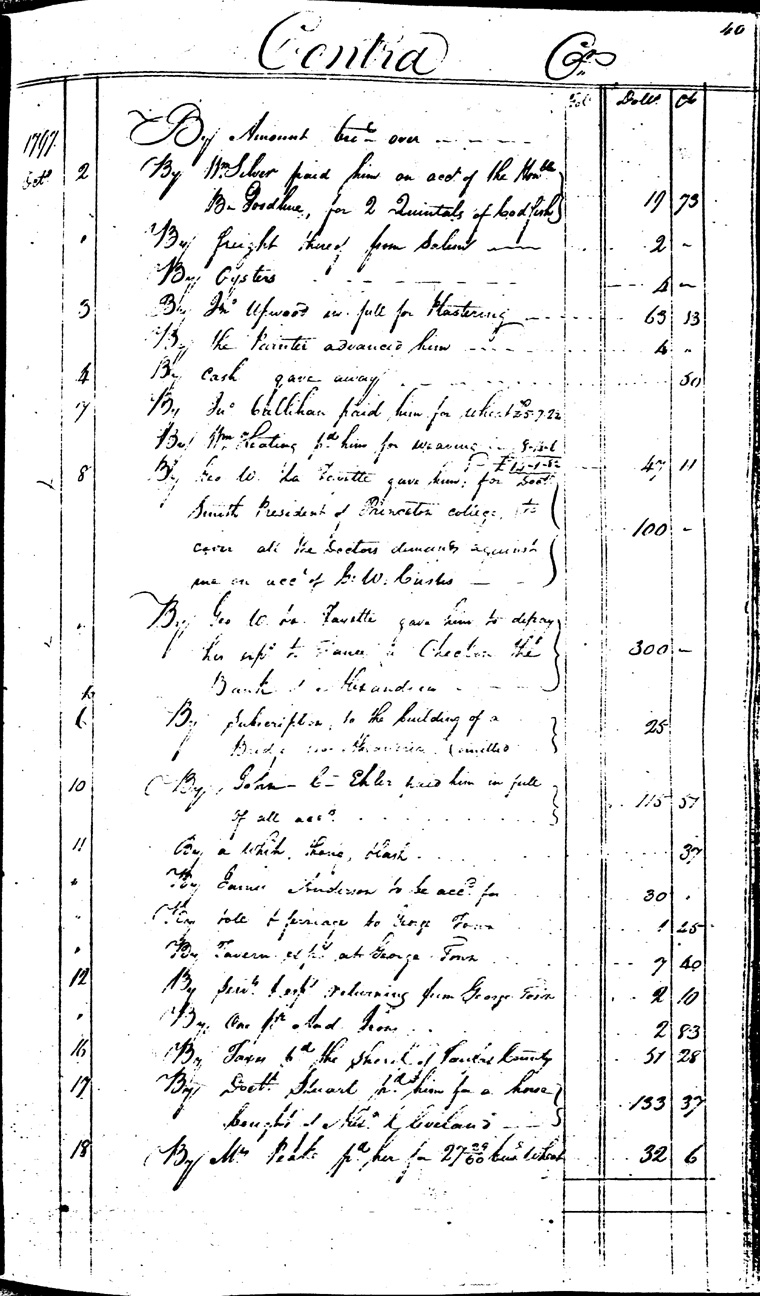 40
Contra Crs
Folo Dolls Cts
1797
By Amount brot over
Octr 2 By Wm Silver paid him on acct of the Honble
Bn Goodhue, for 2 Quintals of Codfish 19 73
" By freight thereof from Salem 2 -
By Oysters 4 -
3 By Jno Upwood in full for Plastering 63 13
By the Painter advanced him 4 "
4 By cash gave away 50
7 By Jno Callihan paid him for wheat
By Wm Keating pd him for weaving
47 11
8 By Geo W. La Fayette gave him, for Doctr
Smith President of Princeton college, to
cover all the Doctors demands against
me on acct of G. W. Custis 100 -
" By Geo W. La Fayette gave him to defray
his exps to France a Check on the
Bank of Alexandria 300 -
6 By Subscription, to the building of a
Bridge omitted 25
10 By John C Ehler paid him in full
of all accts 115 57
11 By a Whip, Thong, Lash 37
" By James Anderson to be accd for 30 "
" By tole & ferriage to George Town 1 25
" By Tavern exps at George Town 7 40
12 By Servts & exps returning from George Town 2 10
" By One pr Sad Irons 2 83
16 By Taxes pd the Sheriff of Fairfax County 51 28
17 By Doctr Stuart pd him for a horse
bought of Cleveland 133 37
18 By Mrs Peake pd her for 27 29/60 bus Wheat 32 6